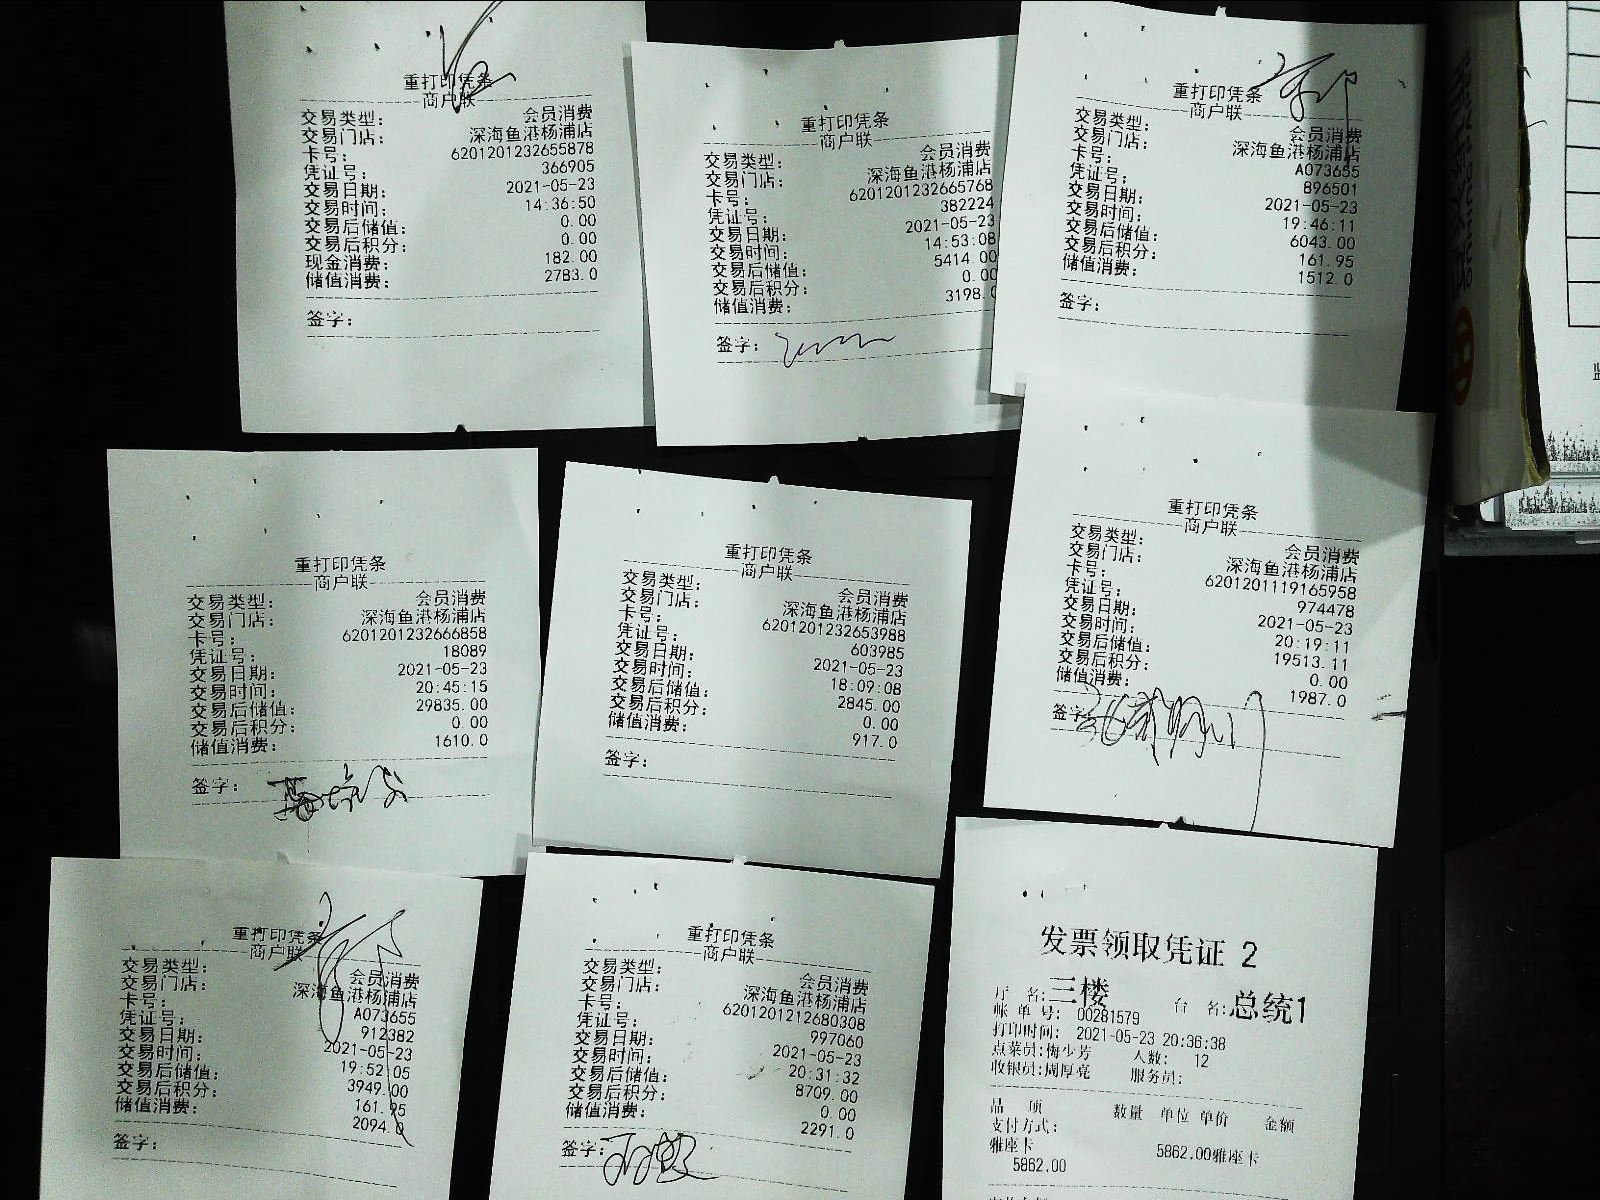 重打印凭条
商户联
交易类型： 会员消费
交易门店： 深海鱼港杨浦店
卡号： 6201201232655878
凭证号： 366905
交易日期： 2021-05-23
交易时间： 14:36:50
交易后储值： 0.00
交易后积分： 0.00
现金消费： 182.00
储值消费： 2783.0
签字：
重打印凭条
商户联
交易类型： 会员消费
交易门店： 深海鱼港杨浦店
卡号： 6201201232665768
凭证号： 382224
交易日期： 2021-05-23
交易时间： 14:53:08
交易后储值： 5414.00
交易后积分： 0.00
储值消费： 3198.0
签字：
重打印凭条
商户联
交易类型： 会员消费
交易门店： 深海鱼港杨浦店
卡号： A073655
凭证号： 896501
交易日期： 2021-05-23
交易时间： 19:46:11
交易后储值： 6043.00
交易后积分： 161.95
储值消费： 1512.0
签字：
重打印凭条
商户联
交易类型： 会员消费
交易门店： 深海鱼港杨浦店
卡号： 6201201232666858
凭证号： 18089
交易日期： 2021-05-23
交易时间： 20:45:15
交易后储值： 29835.00
交易后积分： 0.00
储值消费： 1610.0
签字：
重打印凭条
商户联
交易类型： 会员消费
交易门店： 深海鱼港杨浦店
卡号： 6201201232653988
凭证号： 603985
交易日期： 2021-05-23
交易时间： 18:09:08
交易后储值： 2845.00
交易后积分： 0.00
储值消费： 917.0
签字：
重打印凭条
商户联
交易类型： 会员消费
交易门店： 深海鱼港杨浦店
卡号： 6201201119165958
凭证号： 974478
交易日期： 2021-05-23
交易时间： 20:19:11
交易后储值： 19513.11
交易后积分： 0.00
储值消费： 1987.0
签字
重打印凭条
商户联
交易类型： 会员消费
交易门店： 深海鱼港杨浦店
卡号： A073655
凭证号： 912382
交易日期： 2021-05-23
交易时间： 19:52:05
交易后储值： 3949.00
交易后积分： 161.95
储值消费： 2094.0
签字：
重打印凭条
商户联
交易类型： 会员消费
交易门店： 深海鱼港杨浦店
卡号： 6201201212680308
凭证号： 997060
交易日期： 2021-05-23
交易时间： 20:31:32
交易后储值： 8709.00
交易后积分： 0.00
储值消费： 2291.0
签字：
发票领取凭证 2
厅 名：三楼 台 名：总统1
帐 单 号： 00281579
打印时间： 2021-05-23 20:36:38
点菜员：梅少芳 人数： 12
收银员：周厚亮 服务员：
品 项 数量 单位 单价 金额
支付方式：
雅座卡 5862.00雅座卡
5862.00